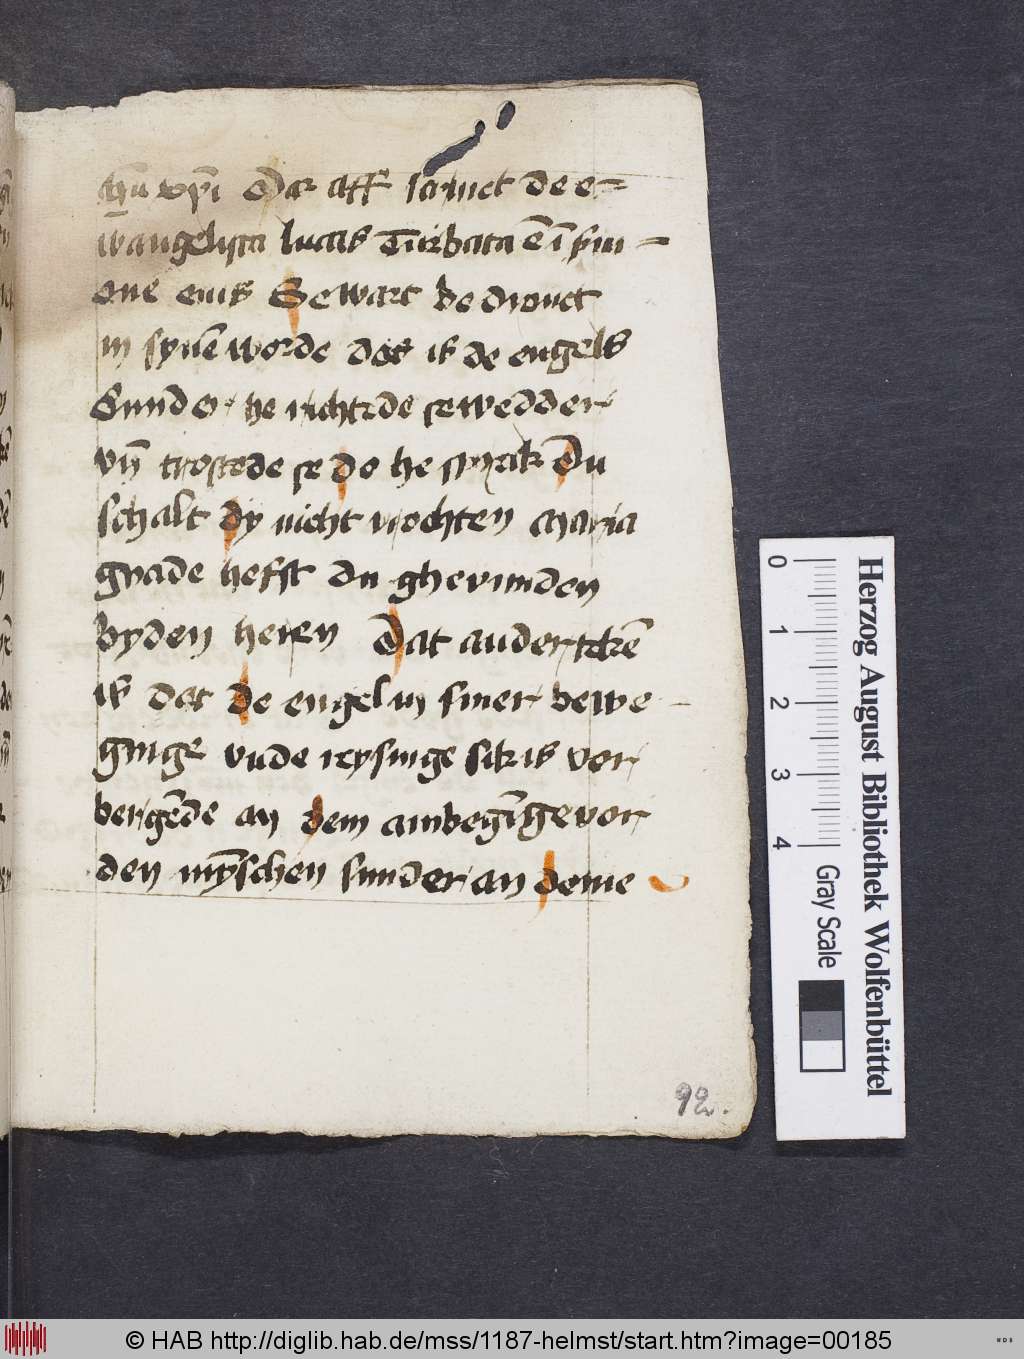 chū vp̄i Dar aff scriuet de e-
wangelista lucas Turbata ē ī ẜm-
one eius Se wart bedrouet
in synē worde dat is de engels
Sunder he richtede se wedder
vn̄ trostede se do he sprak Du
schalt dy nicht vrochten maria
gnade hefst du ghevunden
byden heren Dat ander tekē
is dat de engel in siner bewe-
ginge vnde reysinge sik is vor
bergēde an dem anbegīge vor
den mȳschen sunder an deme
92.
0 1 2 3 4
Gray Scale
Herzog August Bibliothek Wolfenbüttel
© HAB http://diglib.hab.de/mss/1187-helmst/start.htm?image=00185